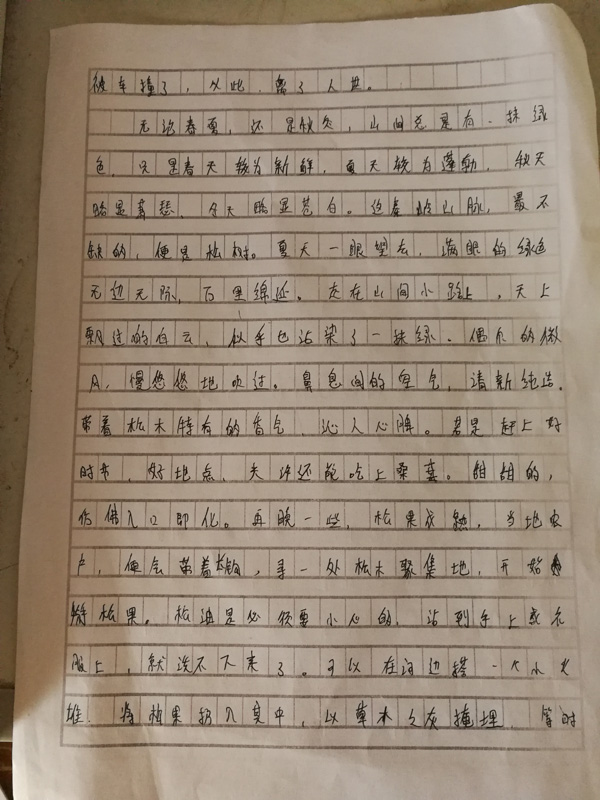 被车撞了，从此，离了人世。
无论春夏，还是秋冬，山间总是有一抹绿
色，只是春天较为新鲜，夏天较为蓬勃，秋天
略显萧瑟，冬天略显苍白。这秦岭山脉，最不
缺的，便是松树。夏天一眼望去，满眼的绿色
无边无际，万里绵延。走在山间小路上，天上
飘过的白云，似乎也沾染了一抹绿。偶尔的微
风，慢悠悠地吹过。鼻息间的空气，清新纯洁。
带着松木特有的香气，沁人心脾。若是赶上好
时节，好地点，天许还能吃上桑葚。甜甜的，
仿佛入口即化。再晚一些，松果成熟，当地农
户，便会带着长钩，寻一处松木聚集地，开始
掰松果。松油是必须要小心的，沾到手上或衣
服上，就洗不下来了。可以在河边搭一个小火
堆，将松果扔入其中，以草木之灰掩埋，等时